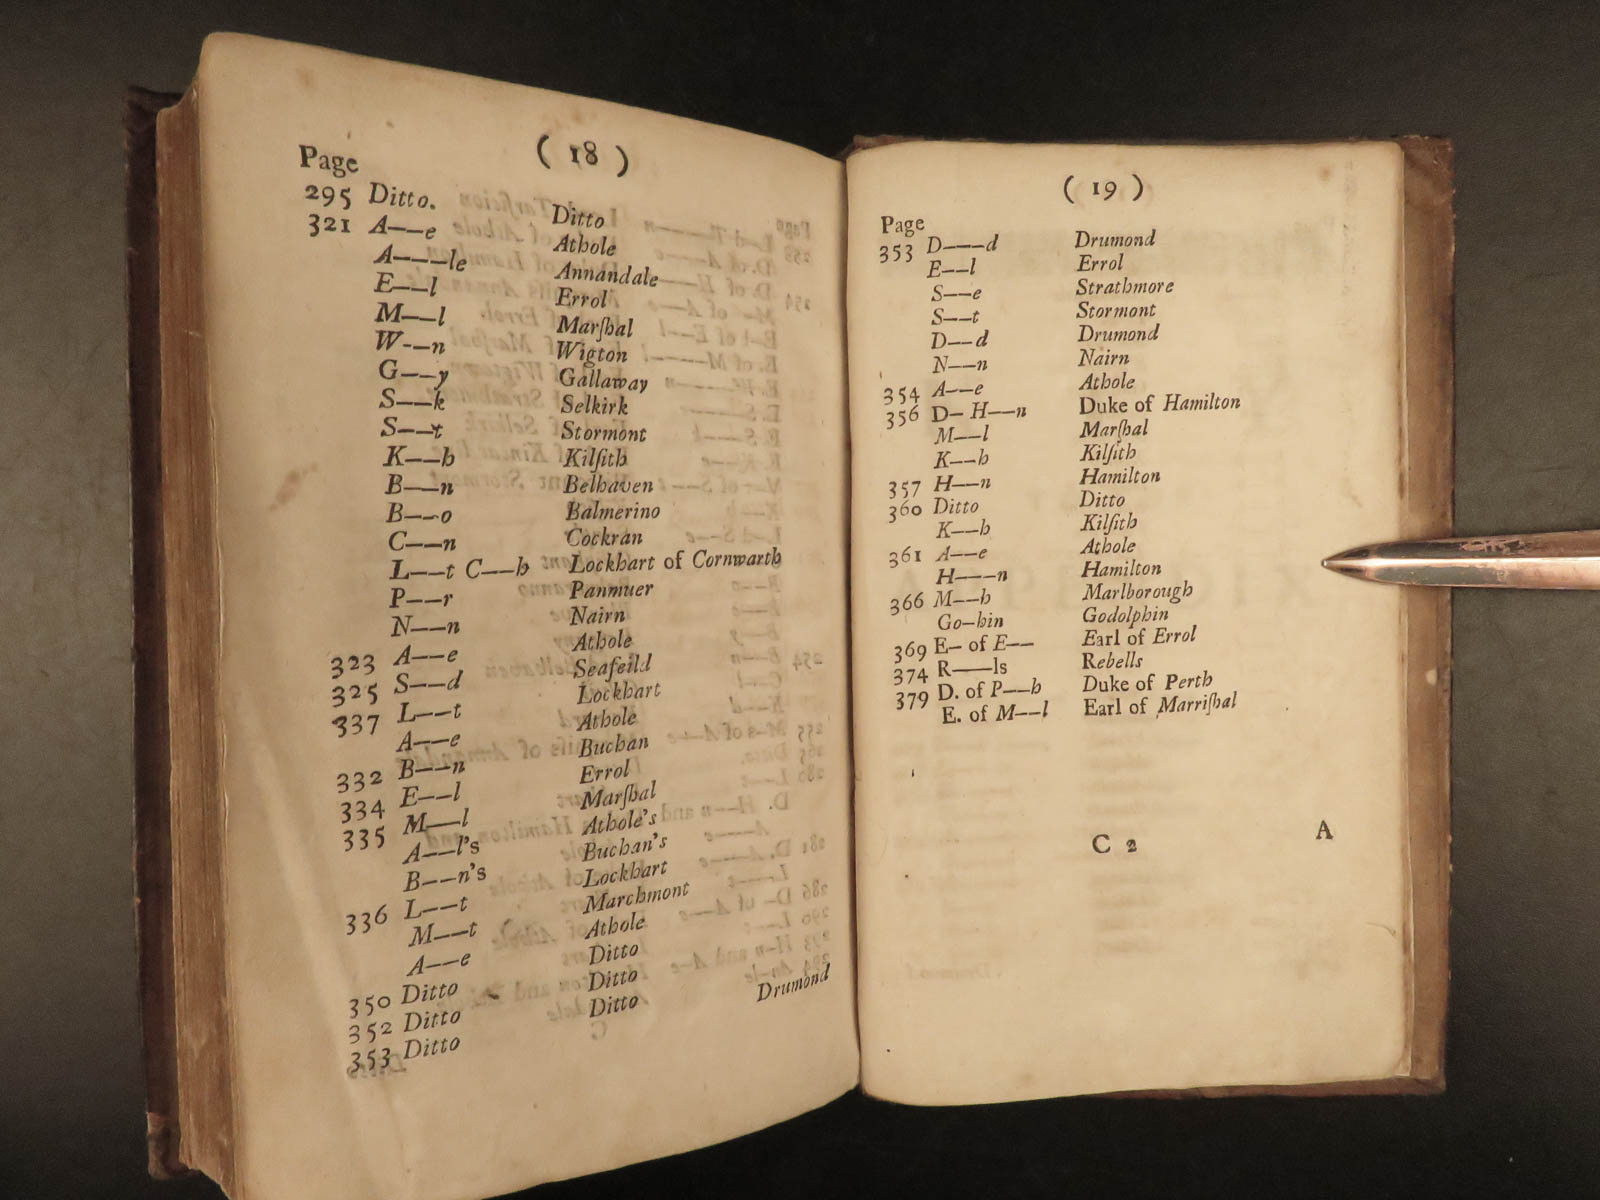 ( 18 )
Page
295 Ditto. Ditto
321 A——e Athole
A———le Annandale
E——l Errol
M——l Marſhal
W-—n Wigton
G——y Gallaway
S——k Selkirk
S——t Stormont
K——h Kilſith
B——n Belhaven
B——o Balmerino
C——n Cockran
L——t C——h Lockhart of Cornwarth
P——r Panmuer
N——n Nairn
323 A——e Athole
325 S——d Seafeild
337 L——t Lockhart
A——e Athole
332 B——n Buchan
334 E——l Errol
335 M——l Marſhal
A——l's Athole's
B——n's Buchan's
336 L——t Lockhart
M——t Marchmont
A——e Athole
350 Ditto Ditto
352 Ditto Ditto
353 Ditto Ditto
Drumond
( 19 )
Page
353 D———d Drumond
E——l Errol
S——e Strathmore
S——t Stormont
D——d Drumond
N——n Nairn
354 A——e Athole
356 D– H——n Duke of Hamilton
M——l Marſhal
K——h Kilſith
357 H——n Hamilton
360 Ditto Ditto
K——h Kilſith
361 A——e Athole
H———n Hamilton
366 M——h Marlborough
Go—hin Godolphin
369 E– of E—— Earl of Errol
374 R———ls Rebells
379 D. of P——h Duke of Perth
E. of M——l Earl of Marriſhal
C 2 A